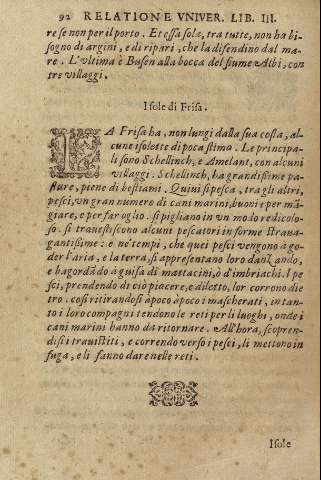 92 RELATIONE VNIVER. LIB. III.
re se non per il porto. Et essa sola, tra tutte, non ha bi-
sogno di argini, e di ripari, che la difendino dal ma
re. L'vltima è Busen alla bocca del fiume Albi, con
tre villaggi.
Isole di Frisa.
LA Frisa ha, non lungi dalla sua costa, al-
cune isolotte di poca stima. Le principa-
li sono Schellinch, e Amelant, con alcuni
villaggi. Schelinch, ha grandissime pa-
sture, piene di bestiami. Quiui si pesca, tra gli altri,
pesci, vn gran numero di cani marini, buoni e per mā
giare, e per far oglio. si pigliano in vn modo redicolo-
so. si trauestiscono alcuni pescatori in forme strauа-
gantissime: e ne' tempi, che quei pesci vengono à go-
der l'aria, e la terra, si appresentano loro danzando,
e bagordādo à guisa di mattacini, ò d'imbriachi. I pe
sci, prendendo di ciò piacere, e diletto, lor corrono die
tro. così ritirandosi à poco à poco i mascherati, in tan-
to i loro compagni tendono le reti per li luoghi, onde i
cani marini hanno da ritornare. All'hora, scopren-
disi i trauistiti, e correndo verso i pesci, li mettono in
fuga, e li fanno dare nelle reti.
Isole